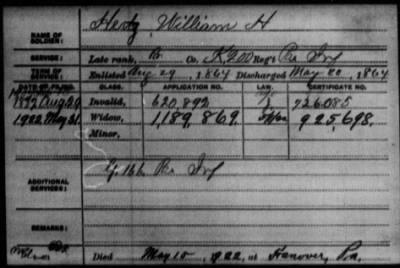 NAME OF SOLDIER: Hertz, William H
SERVICE: Late rank, Pr Co. K 200 Reg't Pa Inf
TERM OF SERVICE: Enlisted Aug 29, 1864 Discharged May 30, 1865
DATE OF FILING. CLASS. APPLICATION NO. LAW. CERTIFICATE NO.
Aug 29 Invalid, 620,892 726085
1922 May 31. Widow, 1,189,869. 925,698.
Minor,
ADDITIONAL SERVICES: G. 166 Pa Inf
REMARKS:
Died May 15, 1922, at Hanover, Pa.